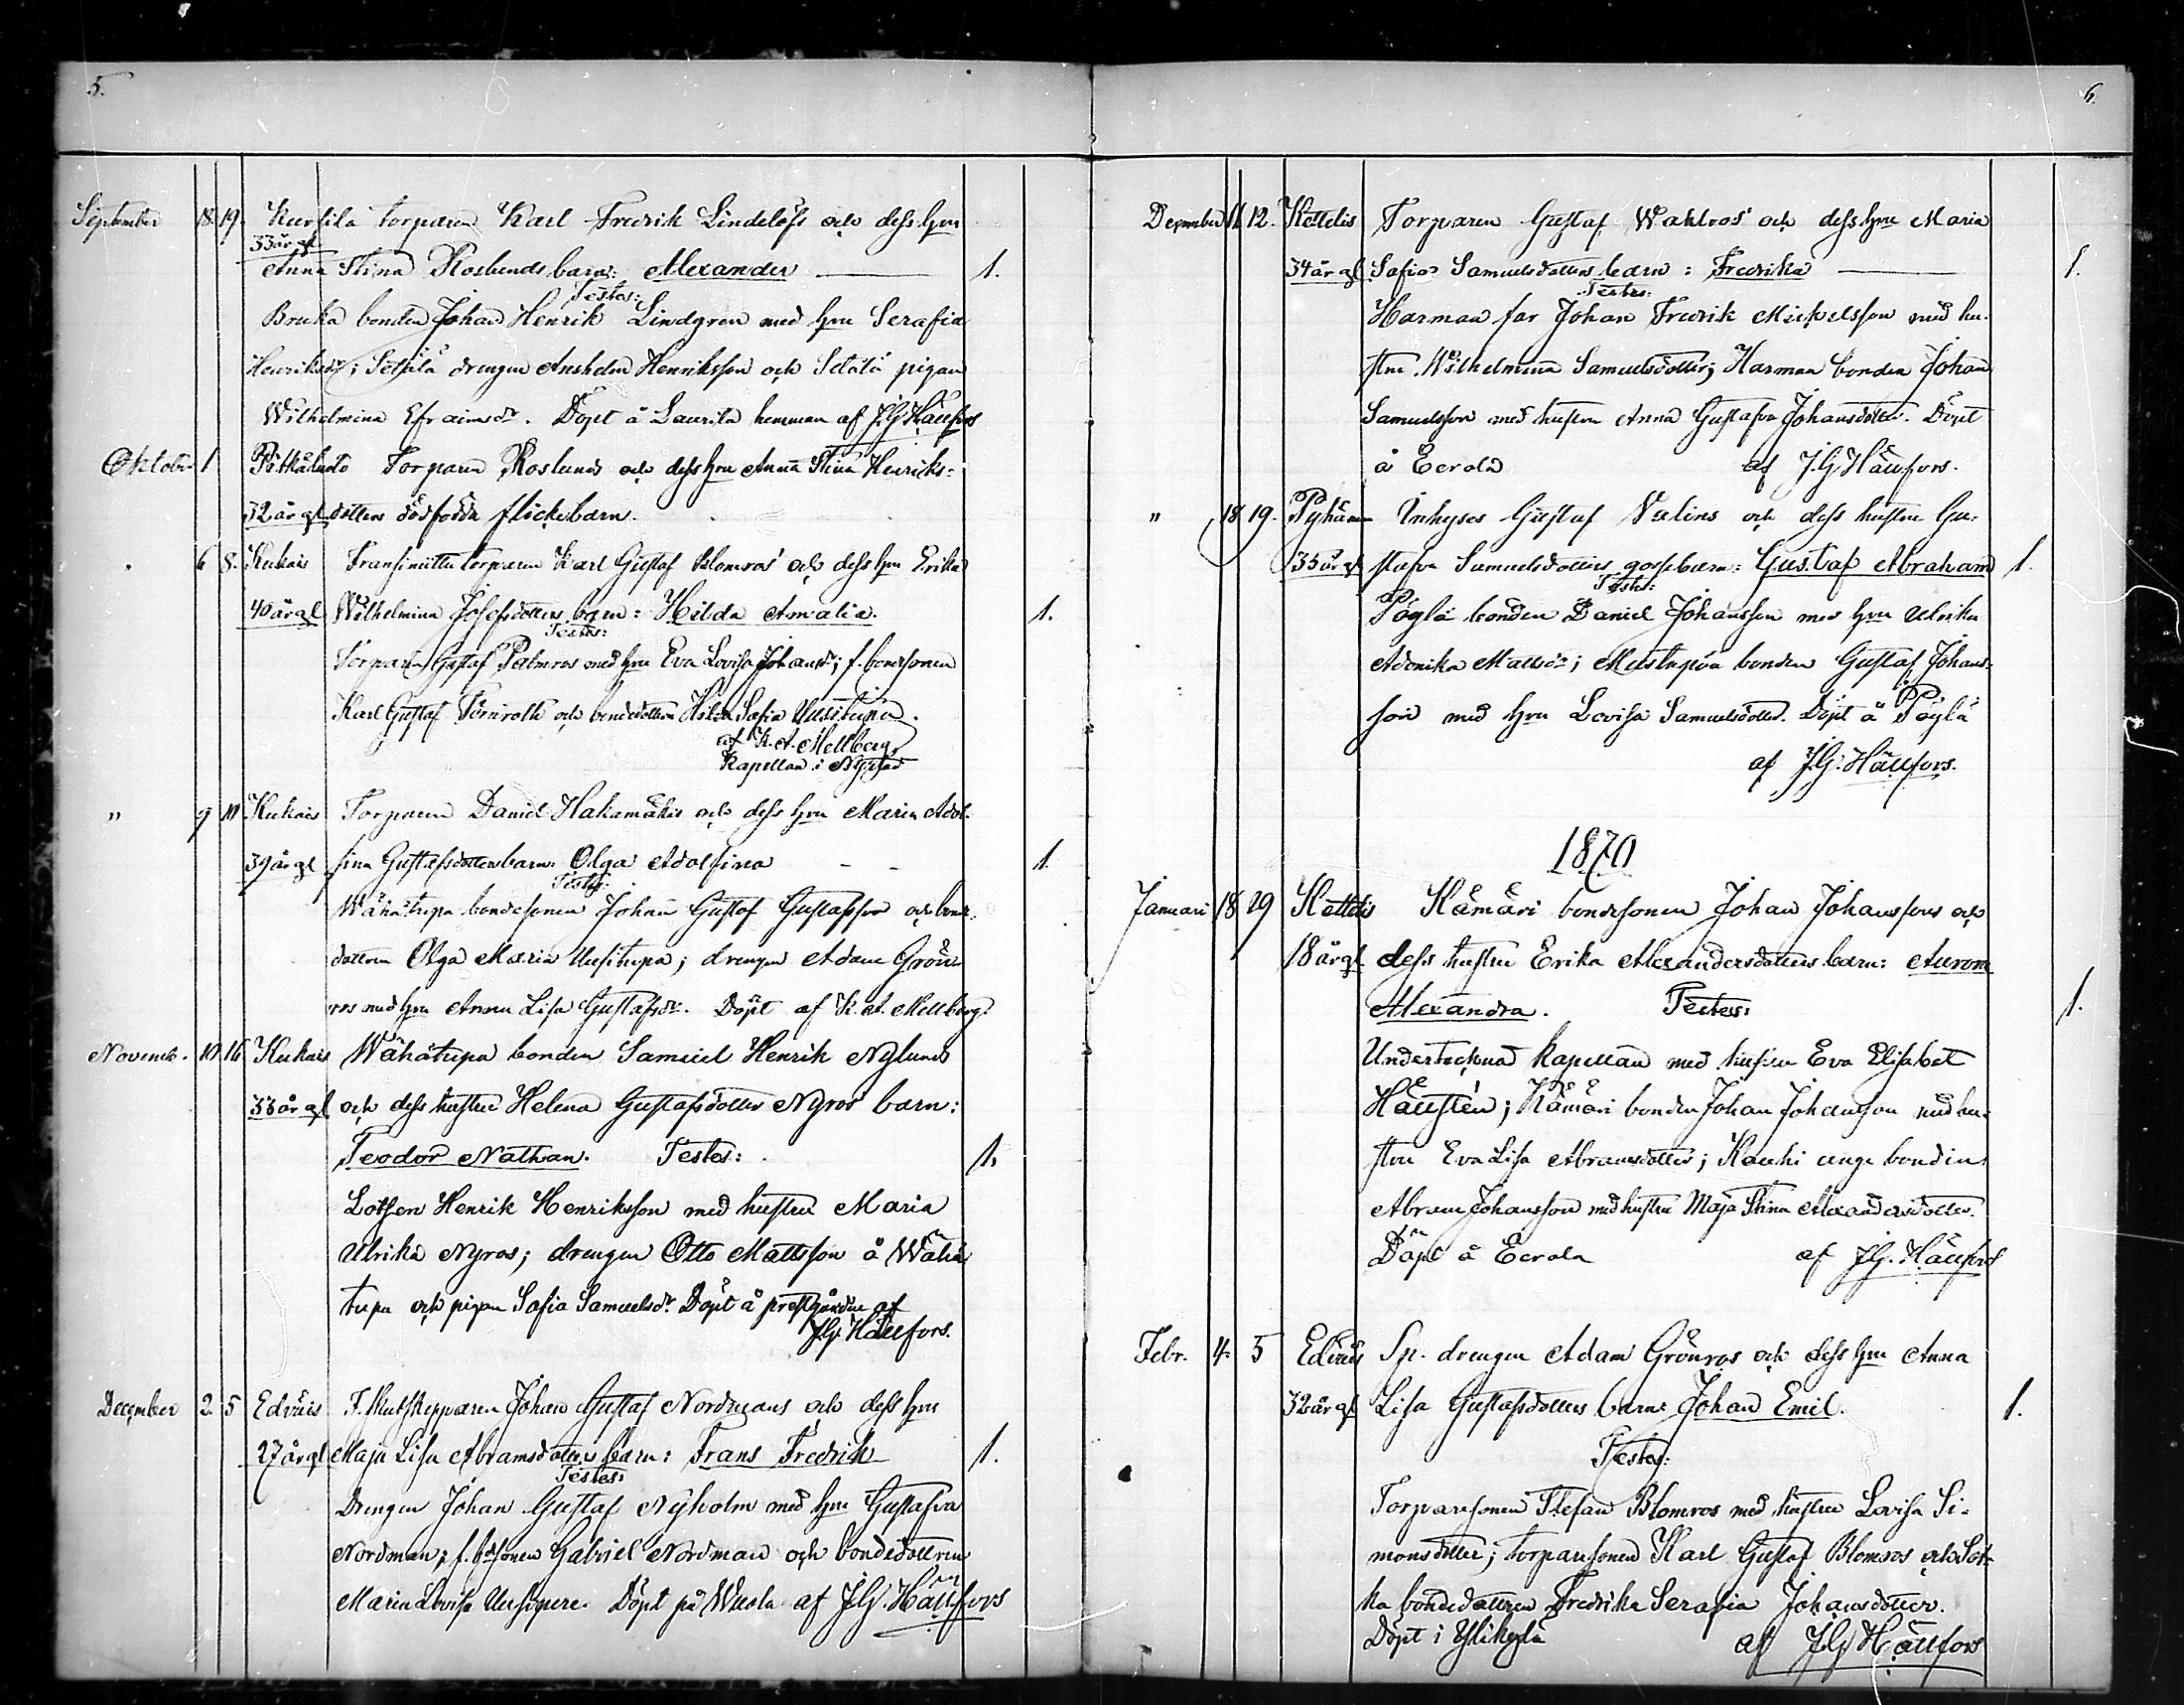 5.
September 18. 19. Kursila torparen Karl Fredrik Lindelöfs och dess hru
33 år gl
Anna Stina Roslunds barn: Alexander 1.
Testes:
Bruka bonden Johan Henrik Lindgren med hru Serafia
Henriksdr; Setälä drengen Anshelm Henriksson och Setälä pigan
Wilhelmina Efraimsdr. Döpt å Laurila hemman af J.G. Hällfors
Oktober 1 Torparen Roslunds och dess hru Anna Stina Henriks-
32 år gl dotters dödfödda flickebarn.
6 8. Kukais torparen Karl Gustaf Blomros' och dess hru Erika
40 år gl Wilhelmina Josefsdotters barn: Hilda Amalia. 1.
Testes:
Torparen Gustaf Palmros med hru Eva Lovisa Johansdr; f. bondsonen
Karl Gustaf Törnroth och bondedottern Hilda Sofia Uusitupa.
af K. A. Mellberg,
Kapellan i Nystad
" 9 10 Kukais Torparen Daniel Hakamäkis och dess hru Maria Adol-
39 år gl fina Gustafsdotters barn: Olga Adolfina 1.
Testes:
Wähätupa bondesonen Johan Gustaf Gustafsson och bonde-
dottern Olga Maria Uusitupa; drengen Adam Grön-
ros med hru Anna Lisa Gustafsdr. Döpt af K. A. Mellberg.
Novemb. 10 16 Kukais Wähätupa bonden Samuel Henrik Nylunds
33 år gl och dess hustru Helena Gustafsdotter Nyros' barn:
Teodor Nathan. Testes: 1.
Lotsen Henrik Henriksson med hustru Maria
Ulrika Nyros; drengen Otto Mattsson å Wähä
tupa och pigan Sofia Samuelsdr. Döpt å prestgården af
J.G. Hällfors.
December 2. 5 Edväis F. skutskepparen Johan Gustaf Nordmans och dess hru
27 år gl Maja Lisa Abramsdotters barn: Frans Fredrik 1.
Testes:
Drengen Johan Gustaf Nyholm med hru Gustafva
Nordman; f. bdsonen Gabriel Nordman och bondedottren
Maria Lovisa Döpt på af J.G. Hällfors
6.
December 11 12. Kettelis Torparen Gustaf Wahlros' och dess hru Maria
34 år gl Sofia Samuelsdotters barn: Fredrika 1.
Testes:
Harman far Johan Fredrik Mickelsson med hu-
stru Wilhelmina Samuelsdotter; Harman bonden Johan
Samuelsson med hustru Anna Gustafva Johansdotter. Döpt
å Eerola af J.G. Hällfors.
" 18 19. Pyhäm Inhyses Gustaf Valins och dess hustru Gu-
35 år gl stafva Samuelsdotters gossebarn: Gustaf Abraham 1.
Testes:
Pöylä bonden Daniel Johansson med hru Ulrika
Adonika Mattsdr; bonden Gustaf Johans-
son med hru Lovisa Samuelsdotter. Döpt å Pöylä
af J.G. Hällfors.
1870
Januari 18 29 Kettelis Kämäri bondesonen Johan Johanssons och
18 år gl dess hustru Erika Alexandersdotters barn: Aurora
Alexandra. Testes: 1.
Undertecknad kapellan med hustru Eva Elisabet
Hällstén; Kämäri bonden Johan Johansson med hu-
stru Eva Lisa Abramsdotter; Kauhi unge bonden
Abram Johansson med hustru Maja Stina Alexandersdotter.
Döpt å Eerola af J.G. Hällfors
Febr. 4. 5 Edväis Sp. drengen Adam Grönros och dess hru Anna
32 år gl Lisa Gustafsdotters barn: Johan Emil. 1.
Testes:
Torparesonen Stefan Blomros med hustru Lovisa Si-
monsdotter; torparesonen Karl Gustaf Blomros och Sot-
ka bondedottren Fredrika Serafia Johansdotter.
Döpt i Ylikylä af J.G. Hällfors